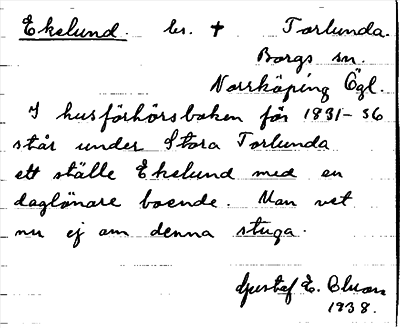 Ekelund. br. † Torlunda.
Borgs sn.
Norrköping Ögl.
I husförhörsboken för 1831-36
står under Stora Torlunda
ett ställe Ekelund med en
daglönare boende. Man vet
nu ej om denna stuga.
Gustaf E.
1938.